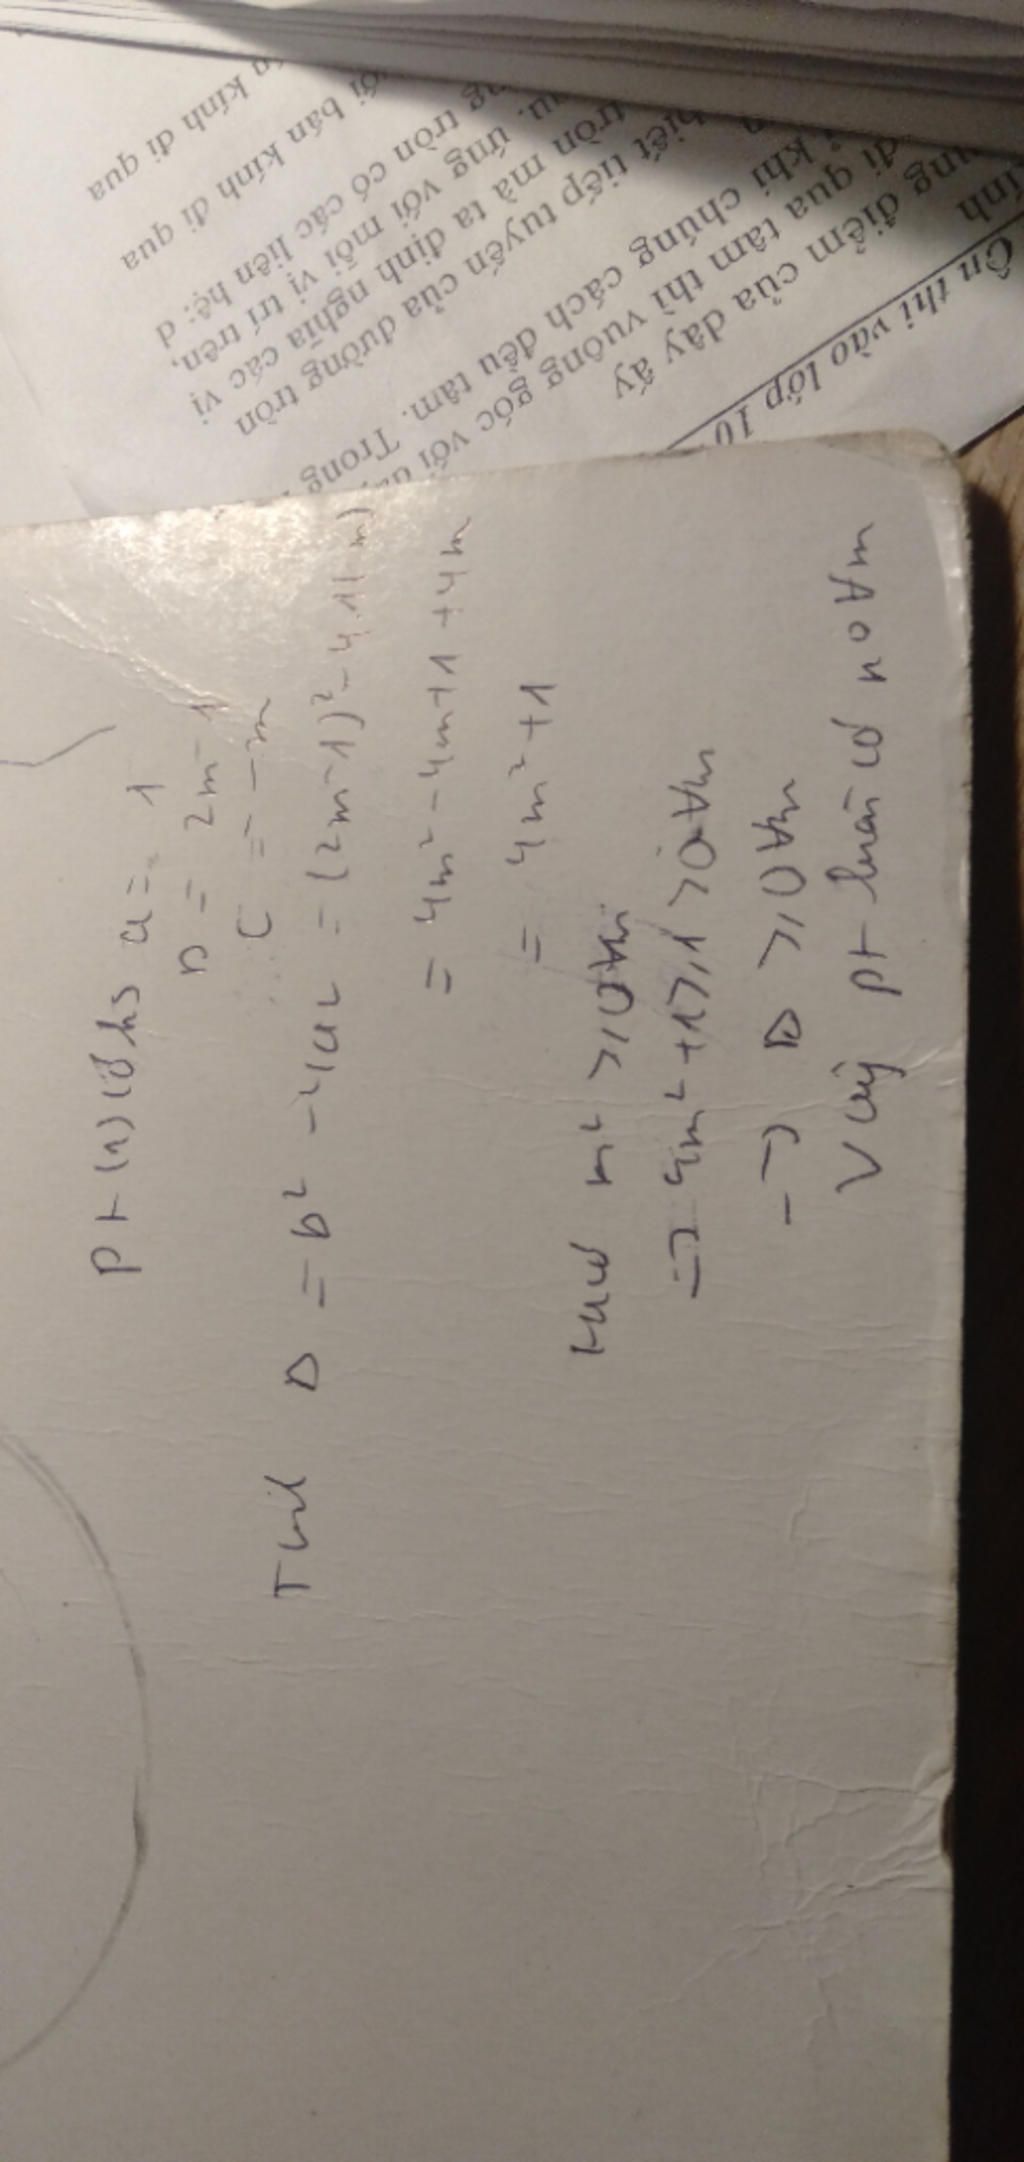 Pt (1) có hs a = 1
b = 2m - 1
c = -m
Tính Δ = b² - 4ac = (2m-1)² - 4.1(-m)
= 4m² - 4m + 1 + 4m
= 4m² + 1
m² ≥ 0 ∀m
=> 4m² + 1 ≥ 1 > 0 ∀m
-> Δ ≥ 0 ∀m
Vậy pt luôn có no ∀m
Ôn thi vào lớp 10
điểm của dây ấy
đi qua tâm thì vuông góc với
khi chúng cách đều tâm. Trong
tiếp tuyến của đường tròn
tròn mà ta định nghĩa các vị
ứng với mỗi vị trí trên,
tròn có các liên hệ: d
bán kính đi qua
kính đi qua